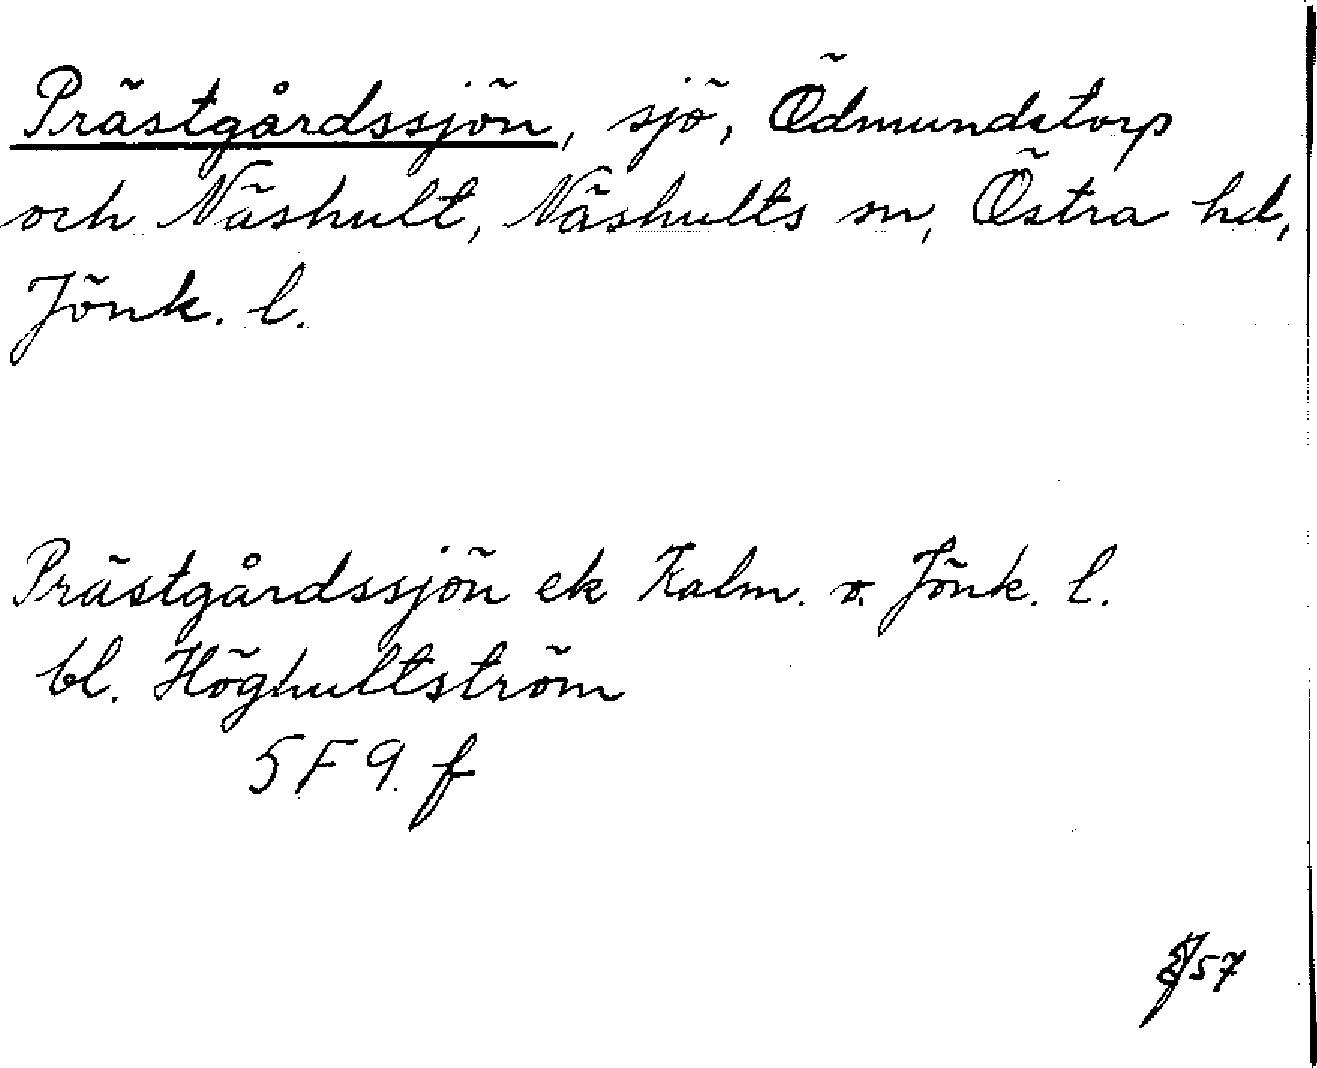 Prästgårdssjön, sjö, Ödmundetorp
och Näshult, Näshults sn, Östra hd,
Jönk. l.
Prästgårdssjön ek Kalm. o. Jönk. l.
bl. Höghultström
5F 9. f
57